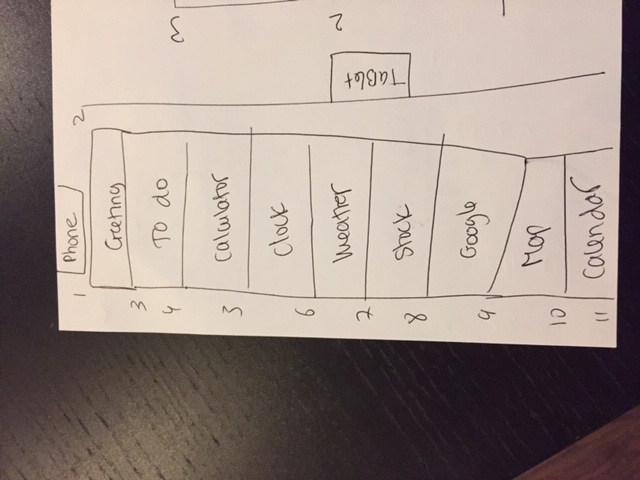 1 Phone 2
Greeting
3
To do
4
Calculator
3
Clock
6
Weather
7
Stock
8
Google
9
Map
10
Calendar
11
TaBlet
3
2